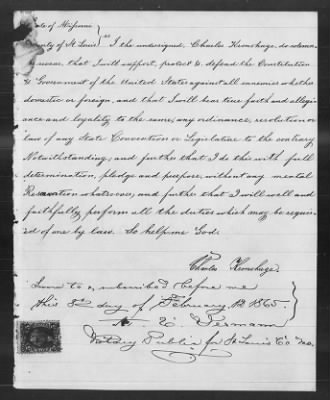 State of Missouri
County of St Louis } ss I the undersigned, Charles Kronshage, do solemn-
ly swear, that I will support, protect & defend the Constitution
& Government of the United States against all enemies whether
domestic or foreign, and that I will bear true faith and allegi-
ance and loyalty to the same, any ordinance, resolution or
law of any State Convention or Legislature to the contrary
Notwithstanding, and further that I do this with full
determination, pledge and purpose, without any mental
Reservation whatsoever, and further that I will well and
faithfully perform all the duties which may be requir-
ed of me by law. So help me God.
Charles Kronshage.
Sworn to & subscribed before me
this 3d day of February AD 1865.
Notary Public for St Louis Co Mo.